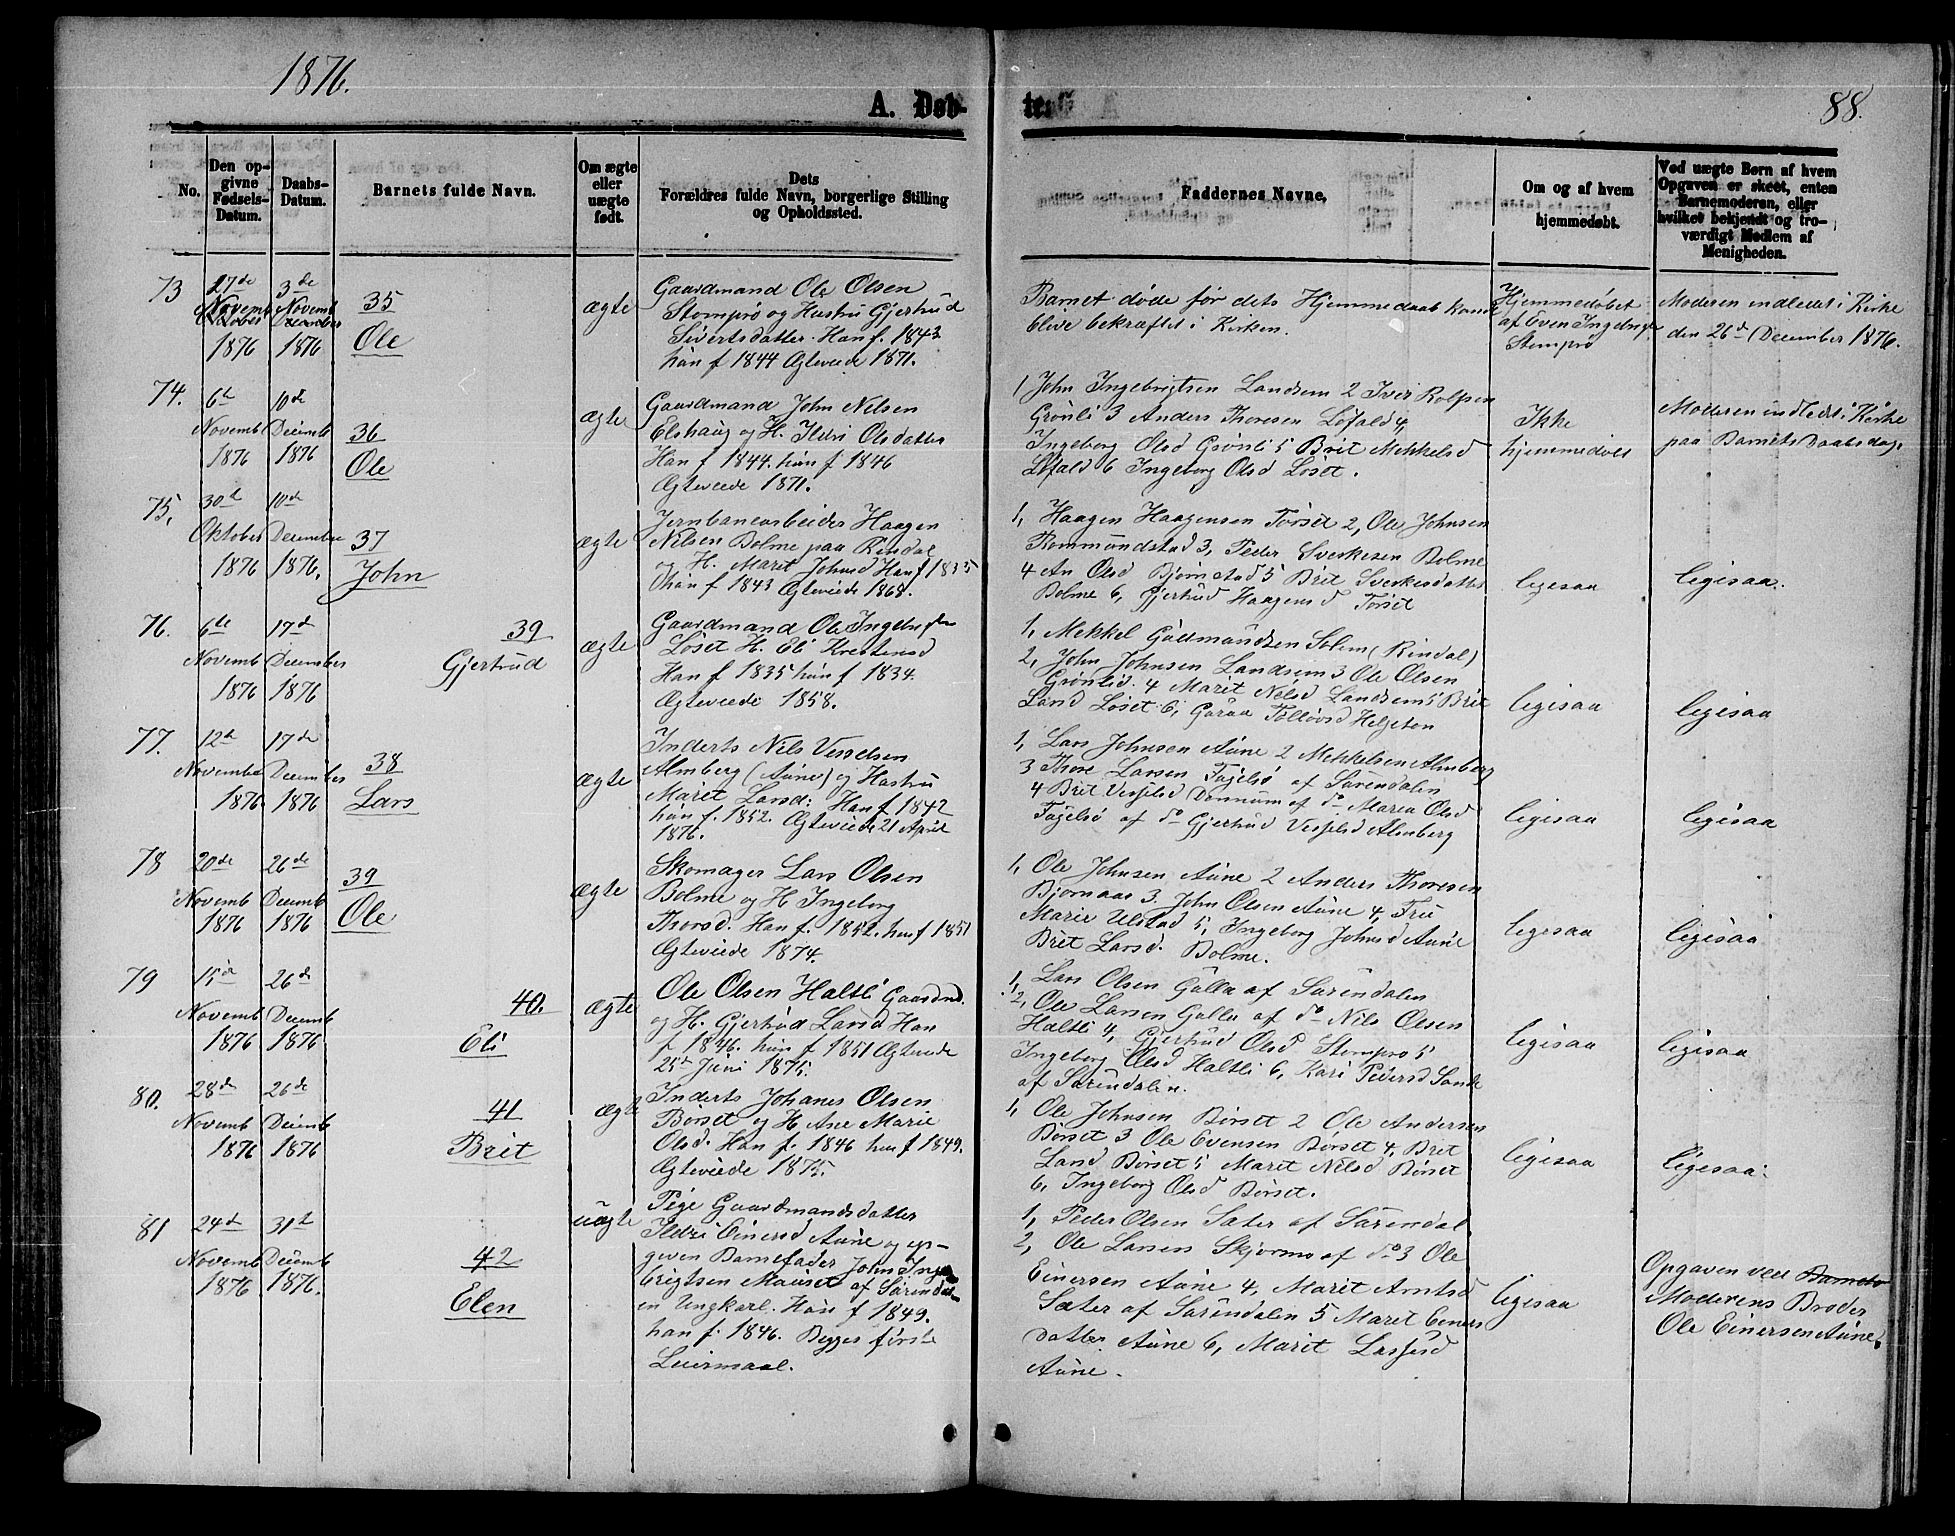 1876.
A. Døb-
te.
88.
No.
Den op-
givne
Fødsels-
Datum.
Daabs-
Datum.
Barnets fulde Navn.
Om ægte
eller
uægte
født.
Dets
Forældres fulde Navn, borgerlige Stilling
og Opholdssted.
Faddernes Navne,
Om og af hvem
hjemmedøbt.
Ved uægte Børn af hvem
Opgaven er skeet, enten
Barnemoderen, eller
hvilket bekjendt og tro-
værdigt Medlem af
Menigheden.
73
27de
Novemb
1876
3de
Novemb
1876
35
Ole
ægte
Gaardmand Ole Olsen
Stomprø og Hustru Gjertrud
Sivertsdatter Han f. 1843
hun f 1844 Ægteviede 1871.
Barnet døde før dets Hjemmedaab kunde
blive bekræftet i Kirken.
Hjemmedøbet
af Even
Stomprø
Moderen indledet i Kirke
den 26de December 1876.
74.
6te
Novemb
1876
10de
Decemb
1876
36
Ole
ægte
Gaardmand John Nilsen
Elshaug og H. Ildri Olsdatter
Han f 1844. hun f. 1846
Ægteviede 1871.
1, John Ingebrigtsen Landsem 2 Iver Rolfsen
Grønli 3 Anders Thoresen Løfald 4,
Ingeborg Olsd Grønli 5 Brit Mekkelsd
Løfald 6 Ingeborg Olsd Løset.
Ikke
hjemmedøbt
Moderen indledet i Kirke
paa Barnets Daabsdag.
75.
30te
Oktober
1876
10de
December
1876.
37
John
ægte
Jernbanearbeider Haagen
Nilsen Bolme paa Rindal
og H. Marit Johnsd Han f 1835
hun f 1843 Ægteviede 1868.
1, Haagen Haagensen Torset 2, Ole Johnsen
Rommundstad 3, Peder Sverkesen Bolme
4 An Olsd Bjørnstad 5 Brit Sverkesdatter
Bolme 6, Gjertrud Haagensd Torset
ligesaa
ligesaa.
76.
6te
Novemb
1876
17de
December
1876
39
Gjertrud
ægte
Gaardmand Ole
Løset H. Eli
Han f 1835 hun f 1834.
Ægteviede 1858.
1, Mekkel Gudmundsen Solem (Rindal)
2, John Johnsen Landsem 3 Ole Olsen
Grønli. 4 Marit Nilsd Landsem 5 Brit
Larsd Løset 6, Guraa Tølløvsd Helgeton
ligesaa
ligesaa
77.
12te
November
1876
17de
December
1876
38
Lars
ægte
Inderts Nils Vesselsen
Almberg (Aune) og Hustru
Maret Larsd: Han f. 1842
hun f. 1852. Ægteviede 21 April
1876.
1, Lars Johnsen Aune 2 Mekkelsen Almberg
3 Thore Larsen Fagelsø af Surendalen
4 Brit Vesselsd Dønnum af do Maren Olsd
Fagelsø af do Gjertrud Vesselsd Almberg
ligesaa
ligesaa
78
20de
Novemb
1876
26de
Decemb
1876
39
Ole
ægte
Skomager Lars Olsen
Bolme og H Ingeborg
Thorsd. Han f. 1852. hun f 1851
Ægteviede 1874.
1, Ole Johnsen Aune 2 Anders Thoresen
Bjørnaas 3. John Olsen Aune 4, Fru
Marie Ulstad 5, Ingeborg Johnsd Aune
Brit Larsd. Bolme.
ligesaa
ligesaa
79
15de
Novemb
1876
26de
Decemb
1876
40.
Eli
ægte
Ole Olsen Haltli Gaardmd.
og H. Gjertrud Larsd Han
f 1846. hun f 1851 Ægteviede
25de Juni 1875.
1, Lars Olsen Gulla af Surendalen
2, Ole Larsen Gulla af do Nils Olsen
Haltli 4, Gjertrud Olsd Stomprø 5
Ingeborg Olsd Haltli 6, Kari Pedersd Sande
af Surendalen.
ligesaa
ligesaa
80.
28de
Novemb
1876
26de
Decemb
1876
41
Brit
ægte
Inderts Johanes Olsen
Børset og H Ane Marie
Olsd. Han f. 1846 hun f 1849.
Ægteviede 1875.
1, Ole Johnsen Børset 2 Ole Andersen
Børset 3 Ole Evensen Børset 4, Brit
Larsd Børset 5 Marit Nilsd Børset
6, Ingeborg Olsd Børset.
ligesaa
ligesaa.
81
24de
Novemb
1876
31te
Decemb
1876.
42
Elen
uægte
Pige Gaardmandsdatter
Ildri Einersd Aune og op-
given Barnefader John Inge
brigtsen Mauset af Surendal-
en Ungkarl. Hun f 1849.
han f. 1846. Begges første
Leiermaal.
1, Peder Olsen Sæter af Surendal
2, Ole Larsen Skjermo af do 3 Ole
Einersen Aune 4, Marit Arntsd
Sæter af Surendalen 5 Maret Einers
datter Aune 6, Marit Lassesd
Aune.
ligesaa
Opgaven ved Barnets
Moderens Broder
Ole Einersen Aune.